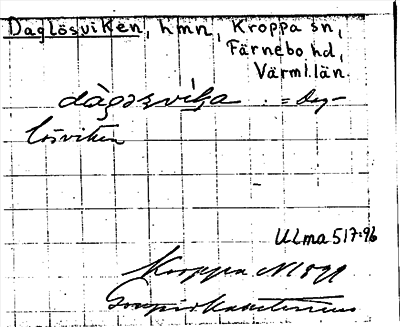 Daglösviken, hmn, Kroppa sn,
Färnebo hd,
Värml. län.
dàgəsvika = Dag-
lösviken
Ulma 517:96
Kroppa